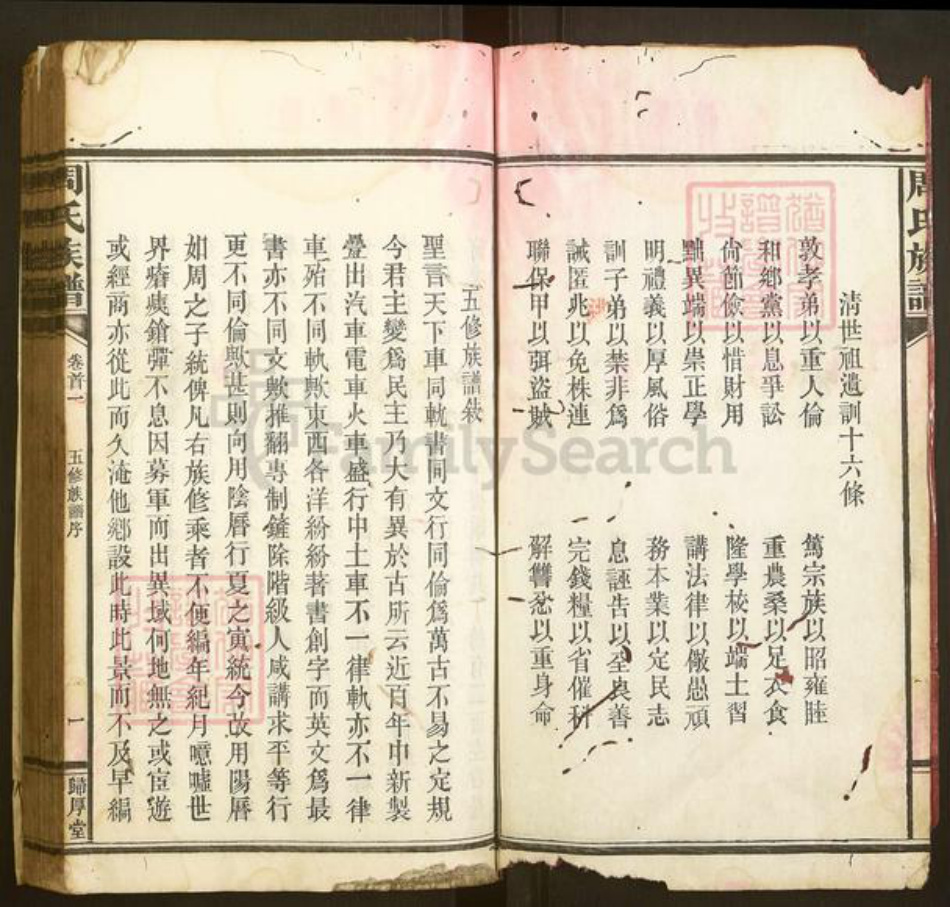 周氏族譜
清世祖遺訓十六條
敦孝弟以重人倫
篤宗族以昭雍睦
和鄉黨以息爭訟
重農桑以足衣食
尙節儉以惜財用
隆學校以端士習
黜異端以崇正學
講法律以儆愚頑
明禮義以厚風俗
務本業以定民志
訓子弟以禁非爲
息誣告以全良善
誡匿兆以免株連
完錢糧以省催科
聯保甲以弭盜賊
解讐忿以重身命
五修族譜敘
聖言天下車同軌書同文行同倫爲萬古不易之定規
今君主變爲民主乃大有異於古所云近百年中新製
疊出汽車電車火車盛行中土車不一律軌亦不一律
車殆不同軌歟東西各洋紛紛著書創字而英文爲最
書亦不同文歟推翻專制鏟除階級人咸講求平等行
更不同倫歟甚則向用陰曆行夏之寅統今改用陽曆
如周之子統俾凡右族修乘者不便編年紀月噫嘘世
界瘡痍鎗彈不息因募軍而出異域何地無之或宦遊
或經商亦從此而久淹他鄉設此時此景而不及早編
周氏族譜
卷首一
五修族譜序
一
歸厚堂
FamilySearch